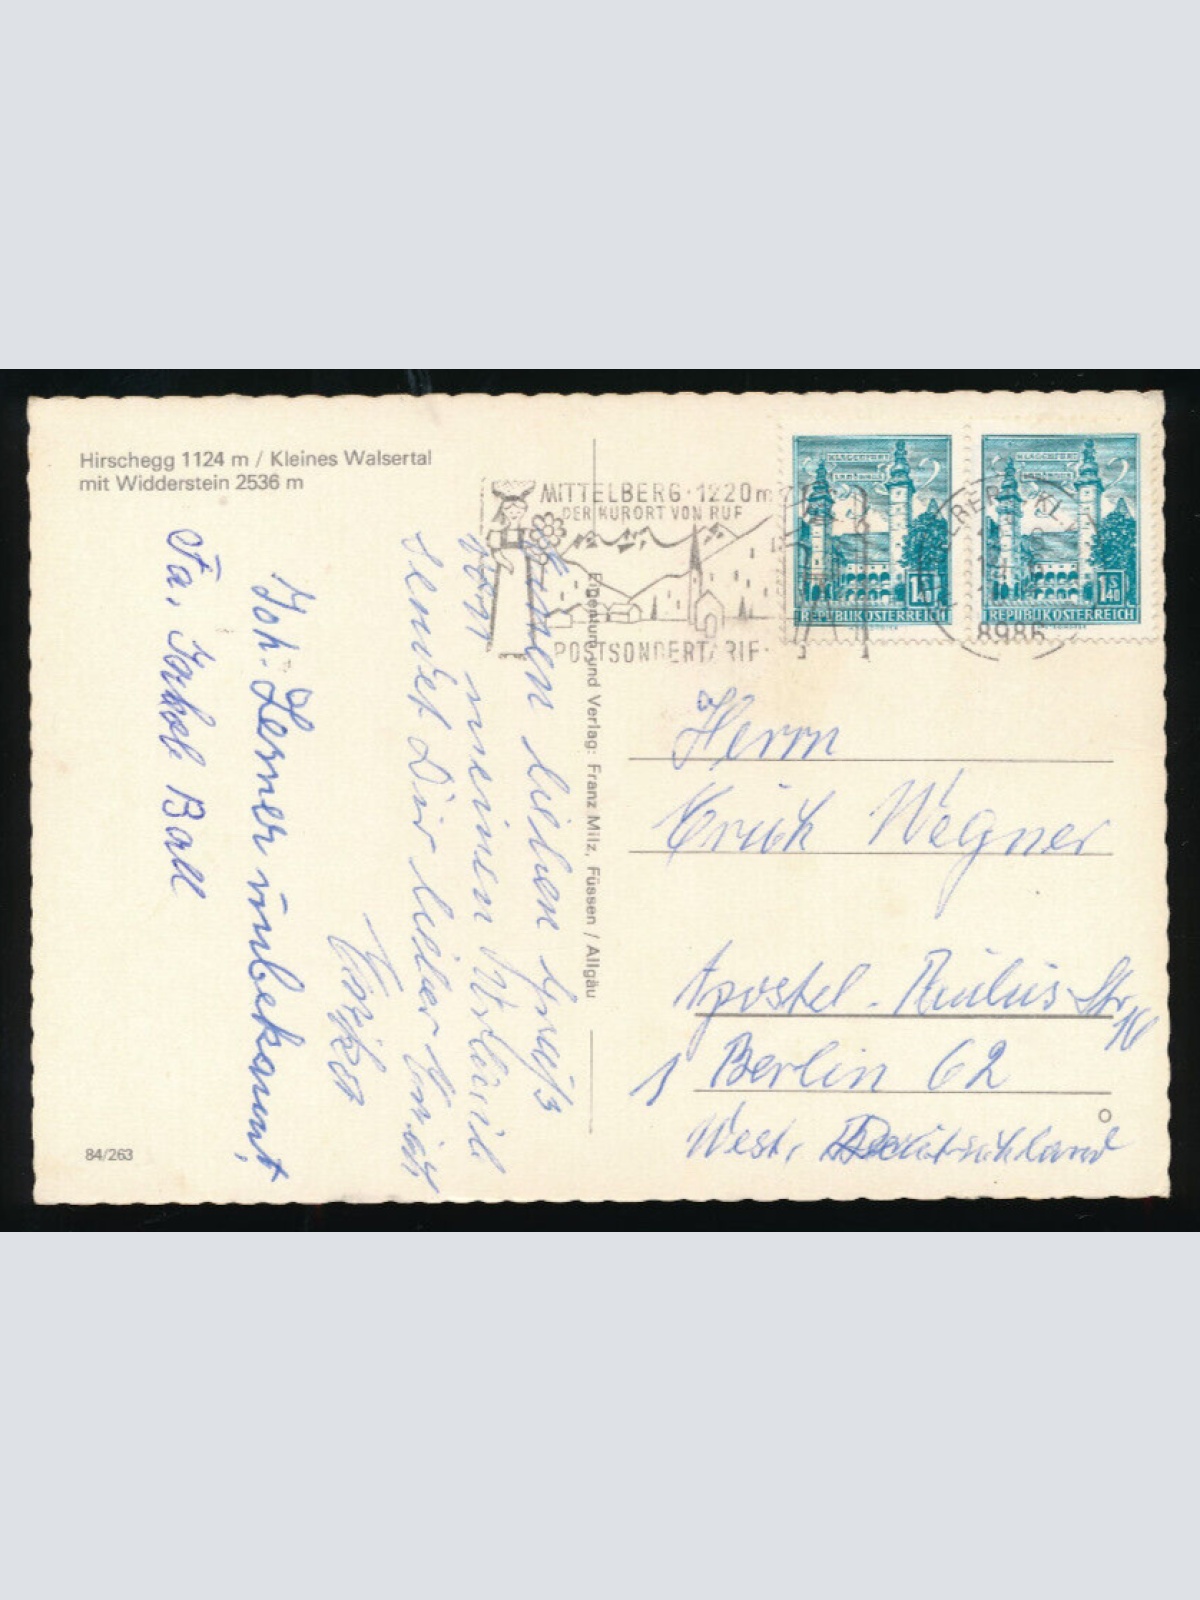 Hirschegg 1124 m / Kleines Walsertal
mit Widderstein 2536 m
MITTELBERG · 1220m
DER KURORT VON RUF
POSTSONDERTARIF
8986
KLAGENFURT
REPUBLIK ÖSTERREICH
1 S 40
KLAGENFURT
REPUBLIK ÖSTERREICH
1 S 40
Einen lieben Gruß
von meinen Urlaub
sendet Dir lieber Erich,
Joh. Lerner unbekannt,
Fa. Jakob Ball
Eigentum und Verlag: Franz Milz, Füssen / Allgäu
Herrn
Erich Wegner
Apostel-Paulus Str
1 Berlin 62
West. Deutschland
84/263